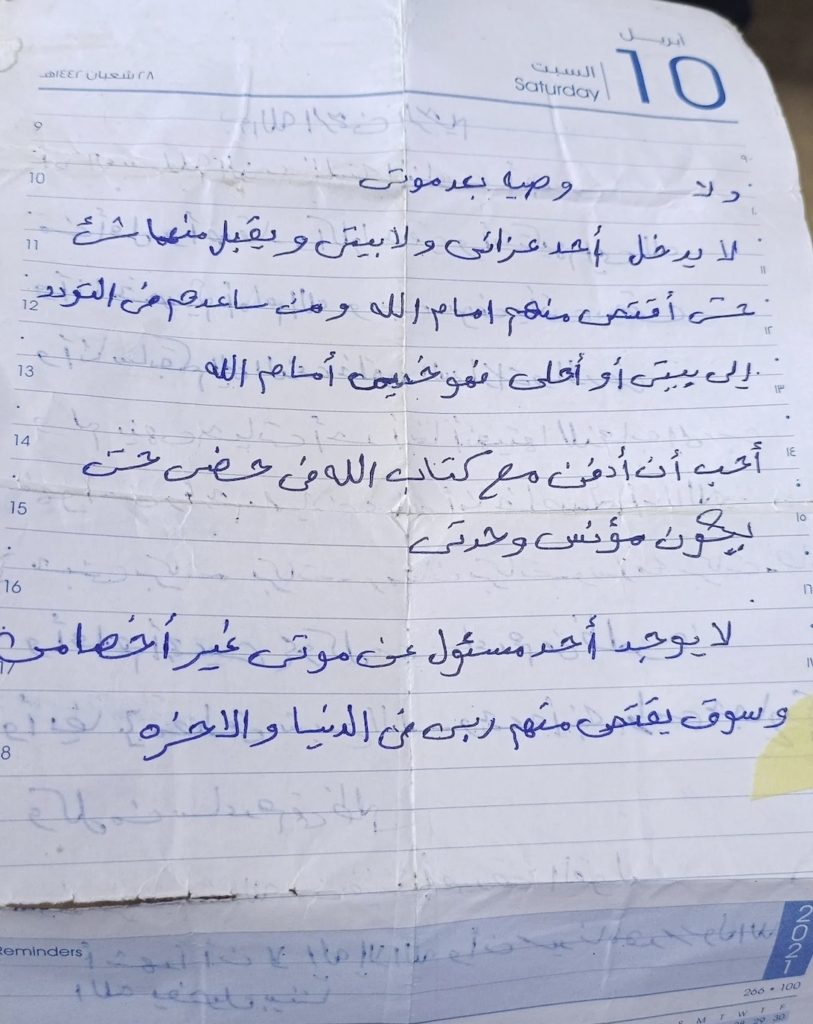 ابريل
10
السبت
Saturday
٢٨ شعبان ١٤٤٢هـ
9
10
ولا وصيه بعد موتى
11
لا يدخل أحد عزائى ولا بيتى ويقبل منهما شئ
12
حتى أقتص منهم امام الله ومن ساعدهم فى التودد
13
إلى بيتى أو أهلى فهو خصيمى أمام الله
14
أحب أن أدفن مع كتاب الله فى حضنى حتى
15
يكون مؤنس وحدتى
16
لا يوجد أحد مسئول عن موتى غير أخصامى
17
وسوق يقتص منهم ربى فى الدنيا والاخره
8
Reminders
2021
266 • 100
S M T W T F
28 29 30